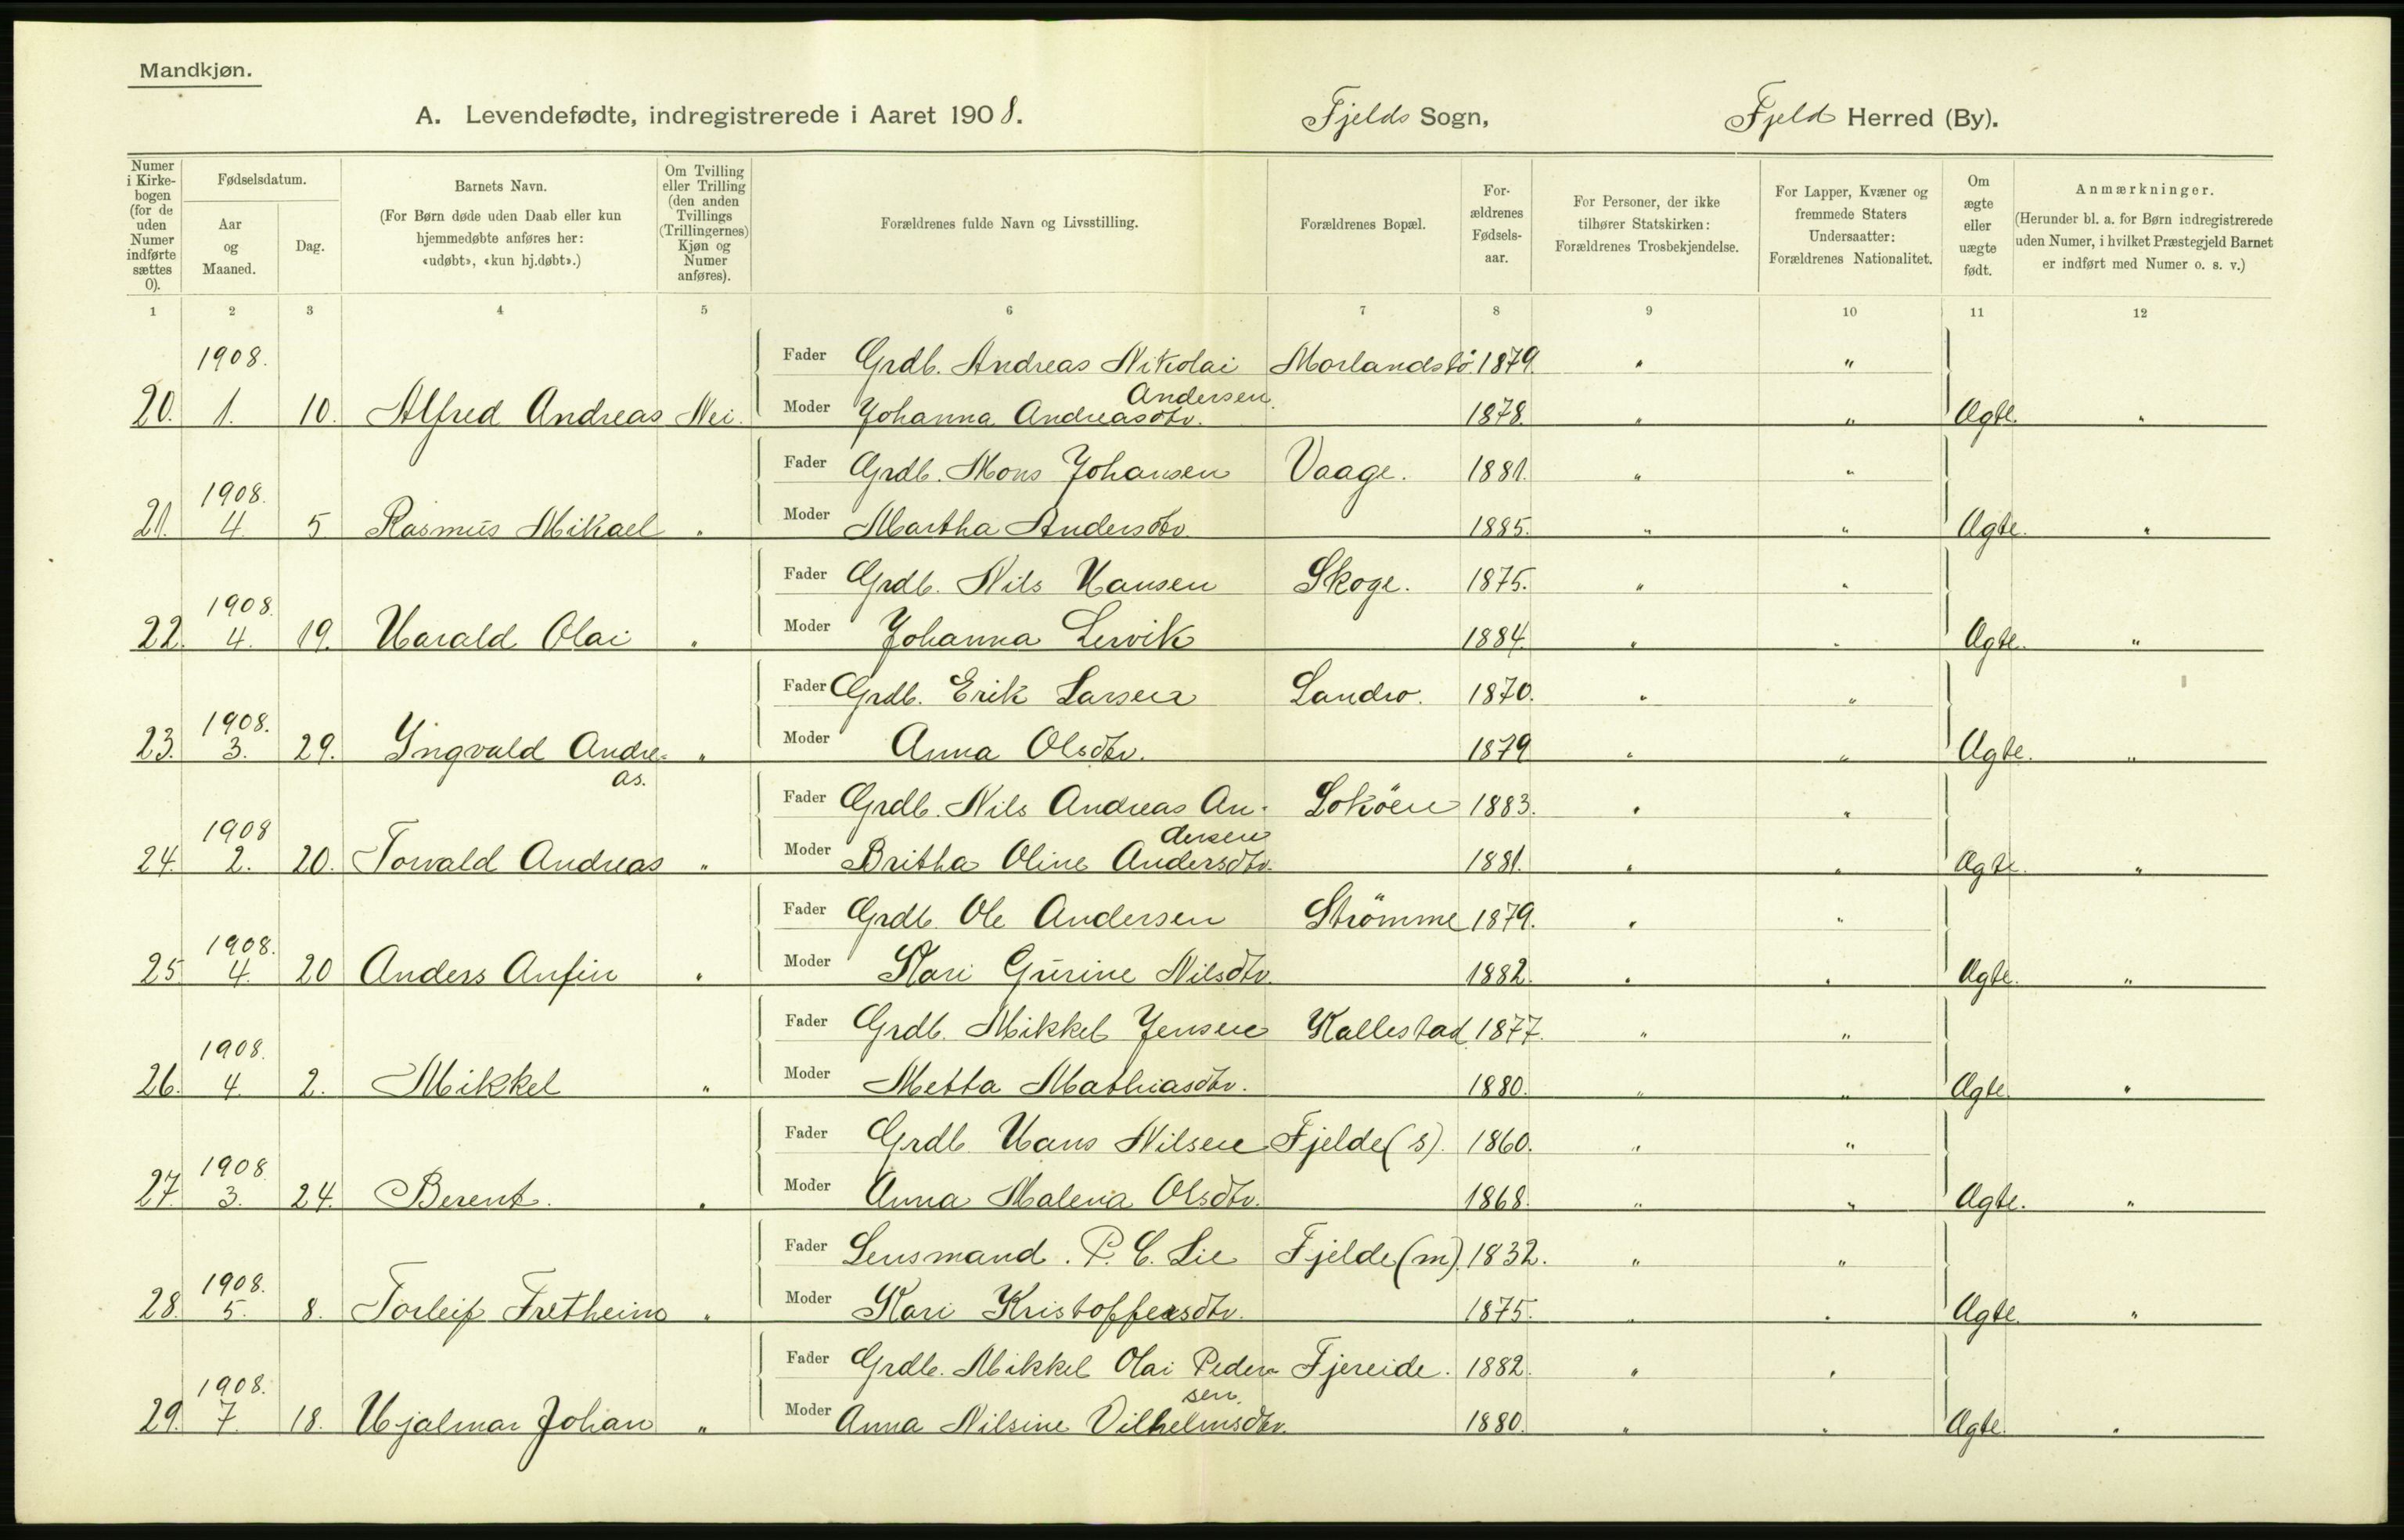 Mandkjøn.
A. Levendefødte, indregistrerede i Aaret 1908. Fjelds Sogn, Fjeld Herred (By).
Numer i Kirkebogen (for de uden Numer indførte sættes 0).
Fødselsdatum.
Aar og Maaned.
Dag.
Barnets Navn.
(For Børn døde uden Daab eller kun hjemmedøbte anføres her: «udøbt», «kun hj.døbt».)
Om Tvilling eller Trilling (den anden Tvillings (Trillingernes) Kjøn og Numer anføres).
Forældrenes fulde Navn og Livsstilling.
Forældrenes Bopæl.
Forældrenes Fødselsaar.
For Personer, der ikke tilhører Statskirken: Forældrenes Trosbekjendelse.
For Lapper, Kvæner og fremmede Staters Undersaatter: Forældrenes Nationalitet.
Om ægte eller uægte født.
Anmærkninger.
(Herunder bl. a. for Børn indregistrerede uden Numer, i hvilket Præstegjeld Barnet er indført med Numer o. s. v.)
1 2 3 4 5 6 7 8 9 10 11 12
1908. Fader Grdb. Andreas Nikolai Morlandstö. 1879. " "
Andersen.
20. 1. 10. Alfred Andreas Nei. Moder Johanna Andreasdtr. 1878. " " Ægte. "
Fader Grdb. Mons Johansen Vaage. 1881. " "
1908.
21. 4. 5 Rasmus Mikael " Moder Martha Andersdtr. 1885. " " Ægte. "
Fader Grdb. Nils Hansen Skoge. 1875. " "
1908.
22. 4. 19. Harald Olai " Moder Johanna Lervik 1884. " " Ægte. "
Fader Grdb. Erik Larsen Landro. 1870. " "
1908.
23. 3. 29. Yngvald Andre- " Moder Anna Olsdtr. 1879 " " Ægte. "
as.
Fader Grdb. Nils Andreas An- Lokøen 1883. " "
1908 dersen
24. 2. 20. Torvald Andreas " Moder Britha Oline Andersdtr. 1881. " " Ægte. "
Fader Grdb. Ole Andersen Strömme 1879. " "
1908.
25 4. 20 Anders Anfin " Moder Kari Gurine Nilsdtr. 1882. " " Ægte. "
Fader Grdb. Mikkel Jensen Kallestad 1877. " "
1908.
26. 4. 2. Mikkel " Moder Metta Mathiasdtr. 1880. " " Ægte. "
Fader Grdb. Hans Nilsen Fjelde (s). 1860. " "
1908
27. 3. 24. Berent. " Moder Anna Malena Olsdtr. 1868. " " Ægte. "
Fader Lensmand. P. C. Lie Fjelde (m). 1832. " "
1908.
28. 5. 8. Torleif Fretheim " Moder Kari Kristoffersdtr. 1875. " " Ægte. "
Fader Grdb. Mikkel Olai Peder- Fjereide. 1882. " "
1908. sen.
29. 7. 18. Hjalmar Johan " Moder Anna Nilsine Vilhelmsdtr. 1880. " " Ægte. "